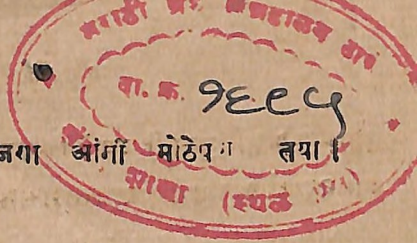 मराठी ग्रंथ संग्रहालय ठाणे
वा. क्र. १६९५
जगा आंगीं मोठेपण तया।
शाखा (स्थळ